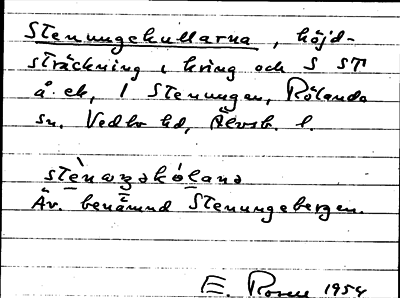 Stenungekullarna, höjd-
sträckning i kring och S ST
å. ek, l Stenungen, Rölanda
sn. Vedbo hd, Älvsb. l.
Äv. benämnd Stenungebergen.
E. Rosen 1954